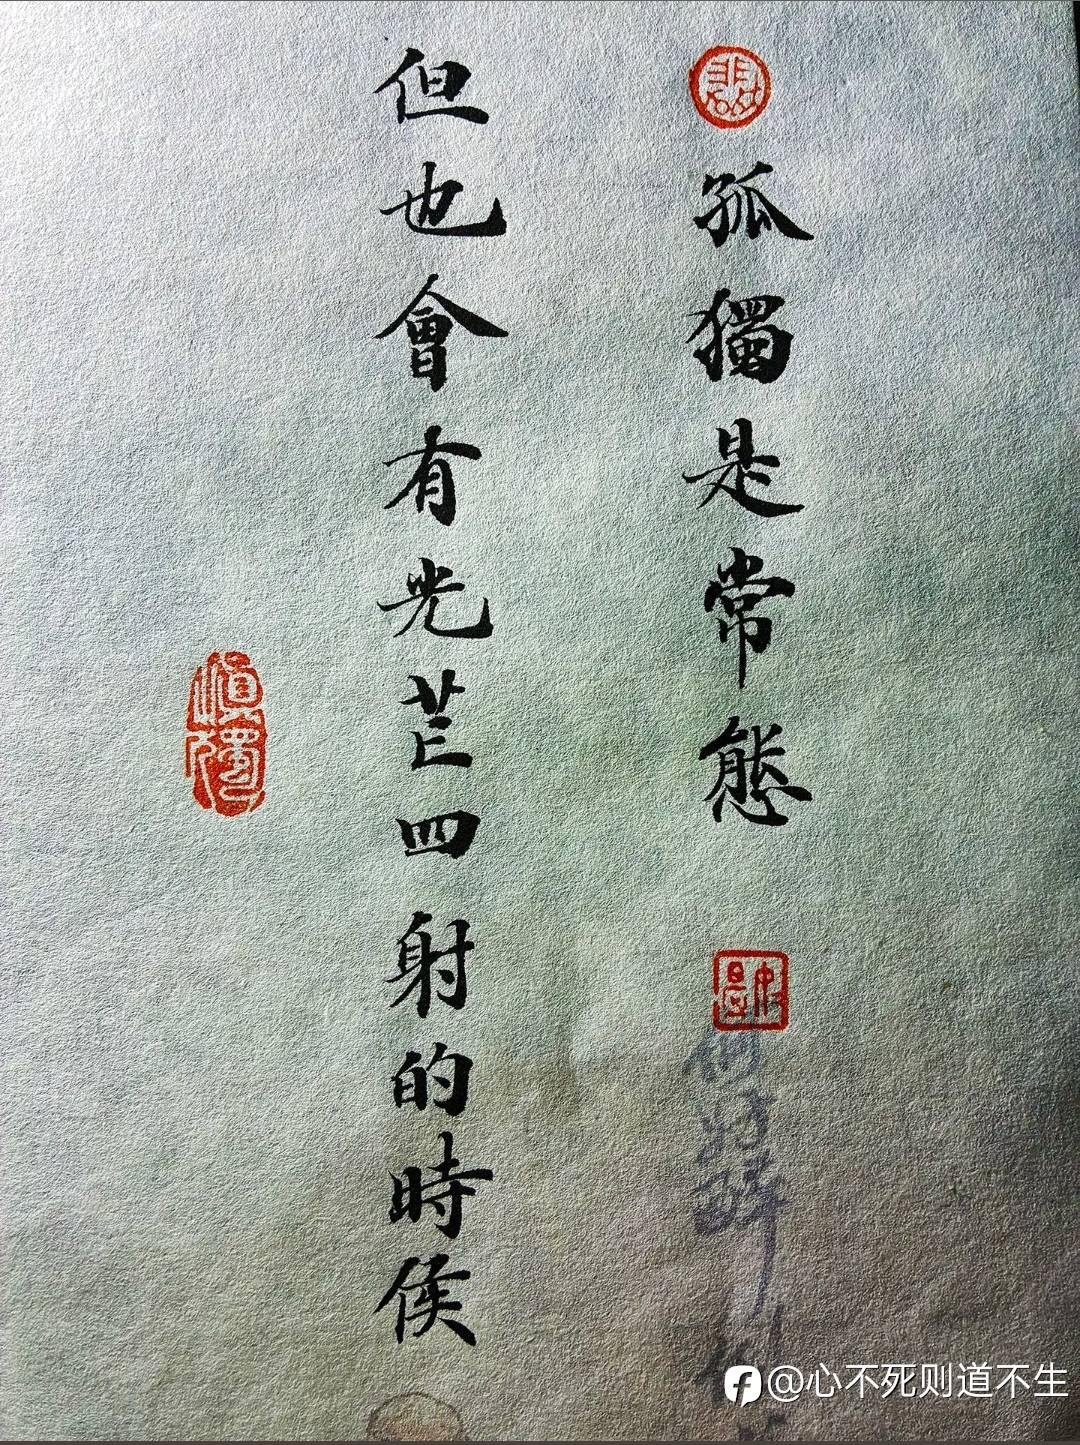 孤獨是常態
但也會有光芒四射的時候
慎獨
@心不死则道不生